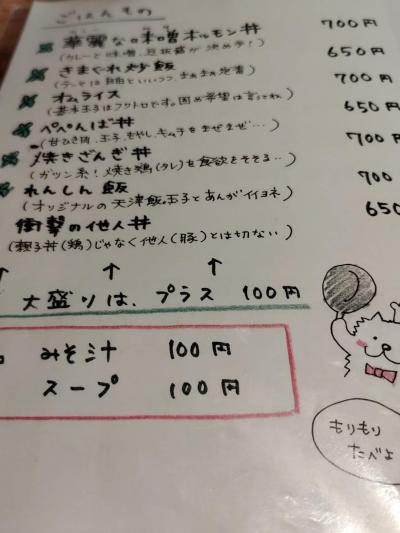 ごはんもの
華麗な味噌ホルモン丼 700円
(カレーと味噌、豆板醤が決め手!)
きまぐれ炒飯 650円
オムライス 700円
(基本玉子はフワトロです。固め希望は言ってね)
ぺぺんば丼 650円
(甘ひき肉、玉子、もやし、キムチをまぜまぜ…)
焼きざんぎ丼 700円
(ガツン系!焼き鶏(タレ)を食欲をそそる…)
れんしん飯 700
(オリジナルの天津飯。玉子とあんがイイヨネ)
衝撃の他人丼 650
(親子丼(鶏)じゃなく他人(豚)とは切ない)
↑ ↑ ↑
大盛りは、プラス 100円
みそ汁 100円
スープ 100円
もりもり
たべよ